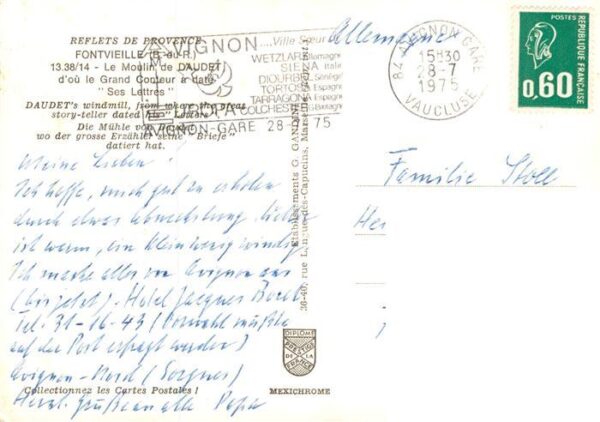 REFLETS DE PROVENCE
FONTVIEILLE (B.-d.-R.)
13.38/14 - Le Moulin de DAUDET
d'où le Grand Conteur a daté
" Ses Lettres "
DAUDET's windmill, from where the great
story-teller dated his " Letters "
Die Mühle von Daudet
wo der grosse Erzähler seine "Briefe"
datiert hat.
AVIGNON ...Ville Sœur
WETZLAR Allemagne
SIENA Italie
DIOURBEL Sénégal
TORTOSA Espagne
TARRAGONA Espagne
COLCHESTER G.Bretagne
EUROPA
AVIGNON-GARE 28-7 75
Allemagne
84 AVIGNON GARE
15H30
28-7
1975
VAUCLUSE
POSTES
REPUBLIQUE FRANÇAISE
0,60
Meine Lieben!
Ich hoffe, mich gut zu erholen
durch etwas Abwechslung. Hier
ist warm, ein klein wenig windig.
Ich mache alles von Avignon aus
(bis jetzt). Hotel Jacques Borel
Tel. 31-16-43 (Vorwahl müßte
auf der Post erfragt werden)
Avignon-Nord (Sorgues)
Herzl. Grüße an alle Papa
Familie Stoll
Her
Etablissements G. GANDINI
36-40, rue Longue-des-Capucins, Marseille
DIPLOME
PRESTIGE
DE LA
FRANCE
MEXICHROME
Collectionnez les Cartes Postales !